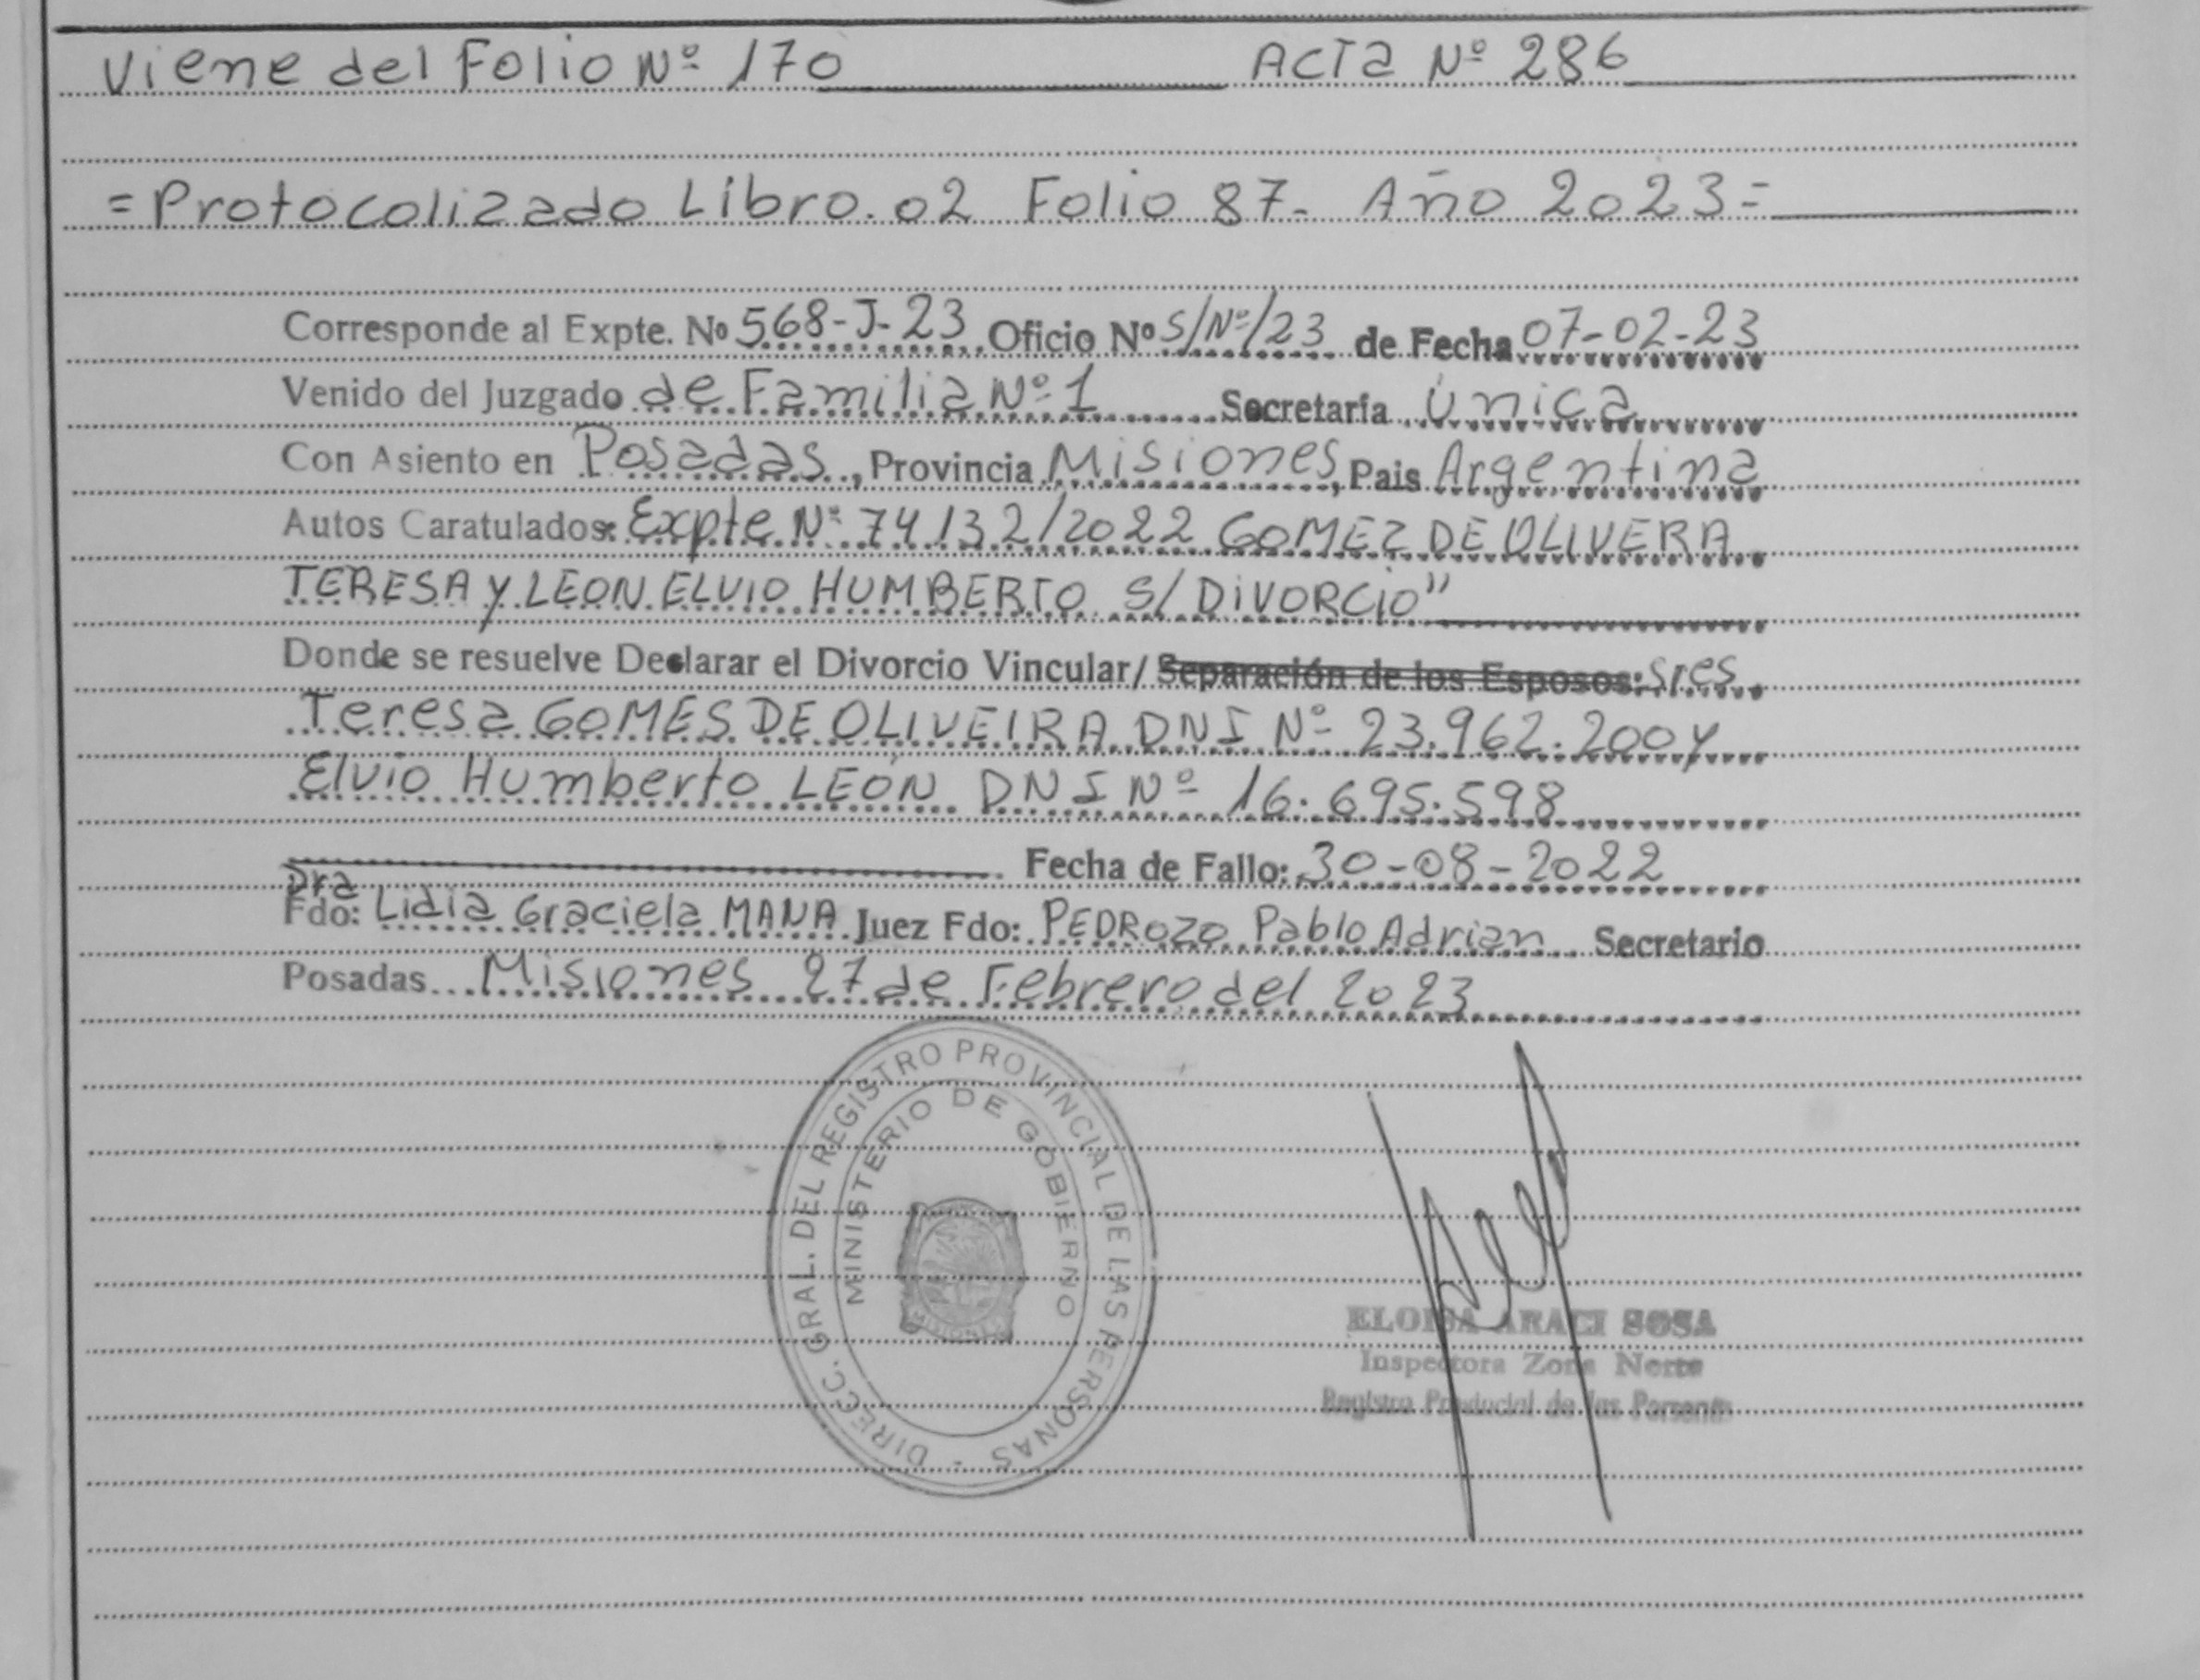 Viene del Folio Nº 170 Acta Nº 286
= Protocolizado Libro. 02 Folio 87- Año 2023 =
Corresponde al Expte. Nº 568-J-23 Oficio Nº S/Nº/23 de Fecha 07-02-23
Venido del Juzgado de Familia Nº 1 Secretaría Única
Con Asiento en Posadas, Provincia Misiones, Pais Argentina
Autos Caratulados: Expte Nº 74132/2022 GOMEZ DE OLIVERA
TERESA Y LEON ELVIO HUMBERTO S/ DIVORCIO"
Donde se resuelve Declarar el Divorcio Vincular/ Separación de los Esposos: Sres
Teresa GOMES DE OLIVEIRA DNI Nº 23.962.200 y
Elvio Humberto LEÓN DNI Nº 16.695.598
Fecha de Fallo: 30-08-2022
Dra
Fdo: Lidia Graciela MANA Juez Fdo: PEDROZO Pablo Adrian Secretario
Posadas Misiones 27 de Febrero del 2023
DIRECC. GRAL. DEL REGISTRO PROVINCIAL DE LAS PERSONAS -
MINISTERIO DE GOBIERNO
MISIONES
ELOISA ARACI SOSA
Inspectora Zona Norte
Registro Provincial de las Personas